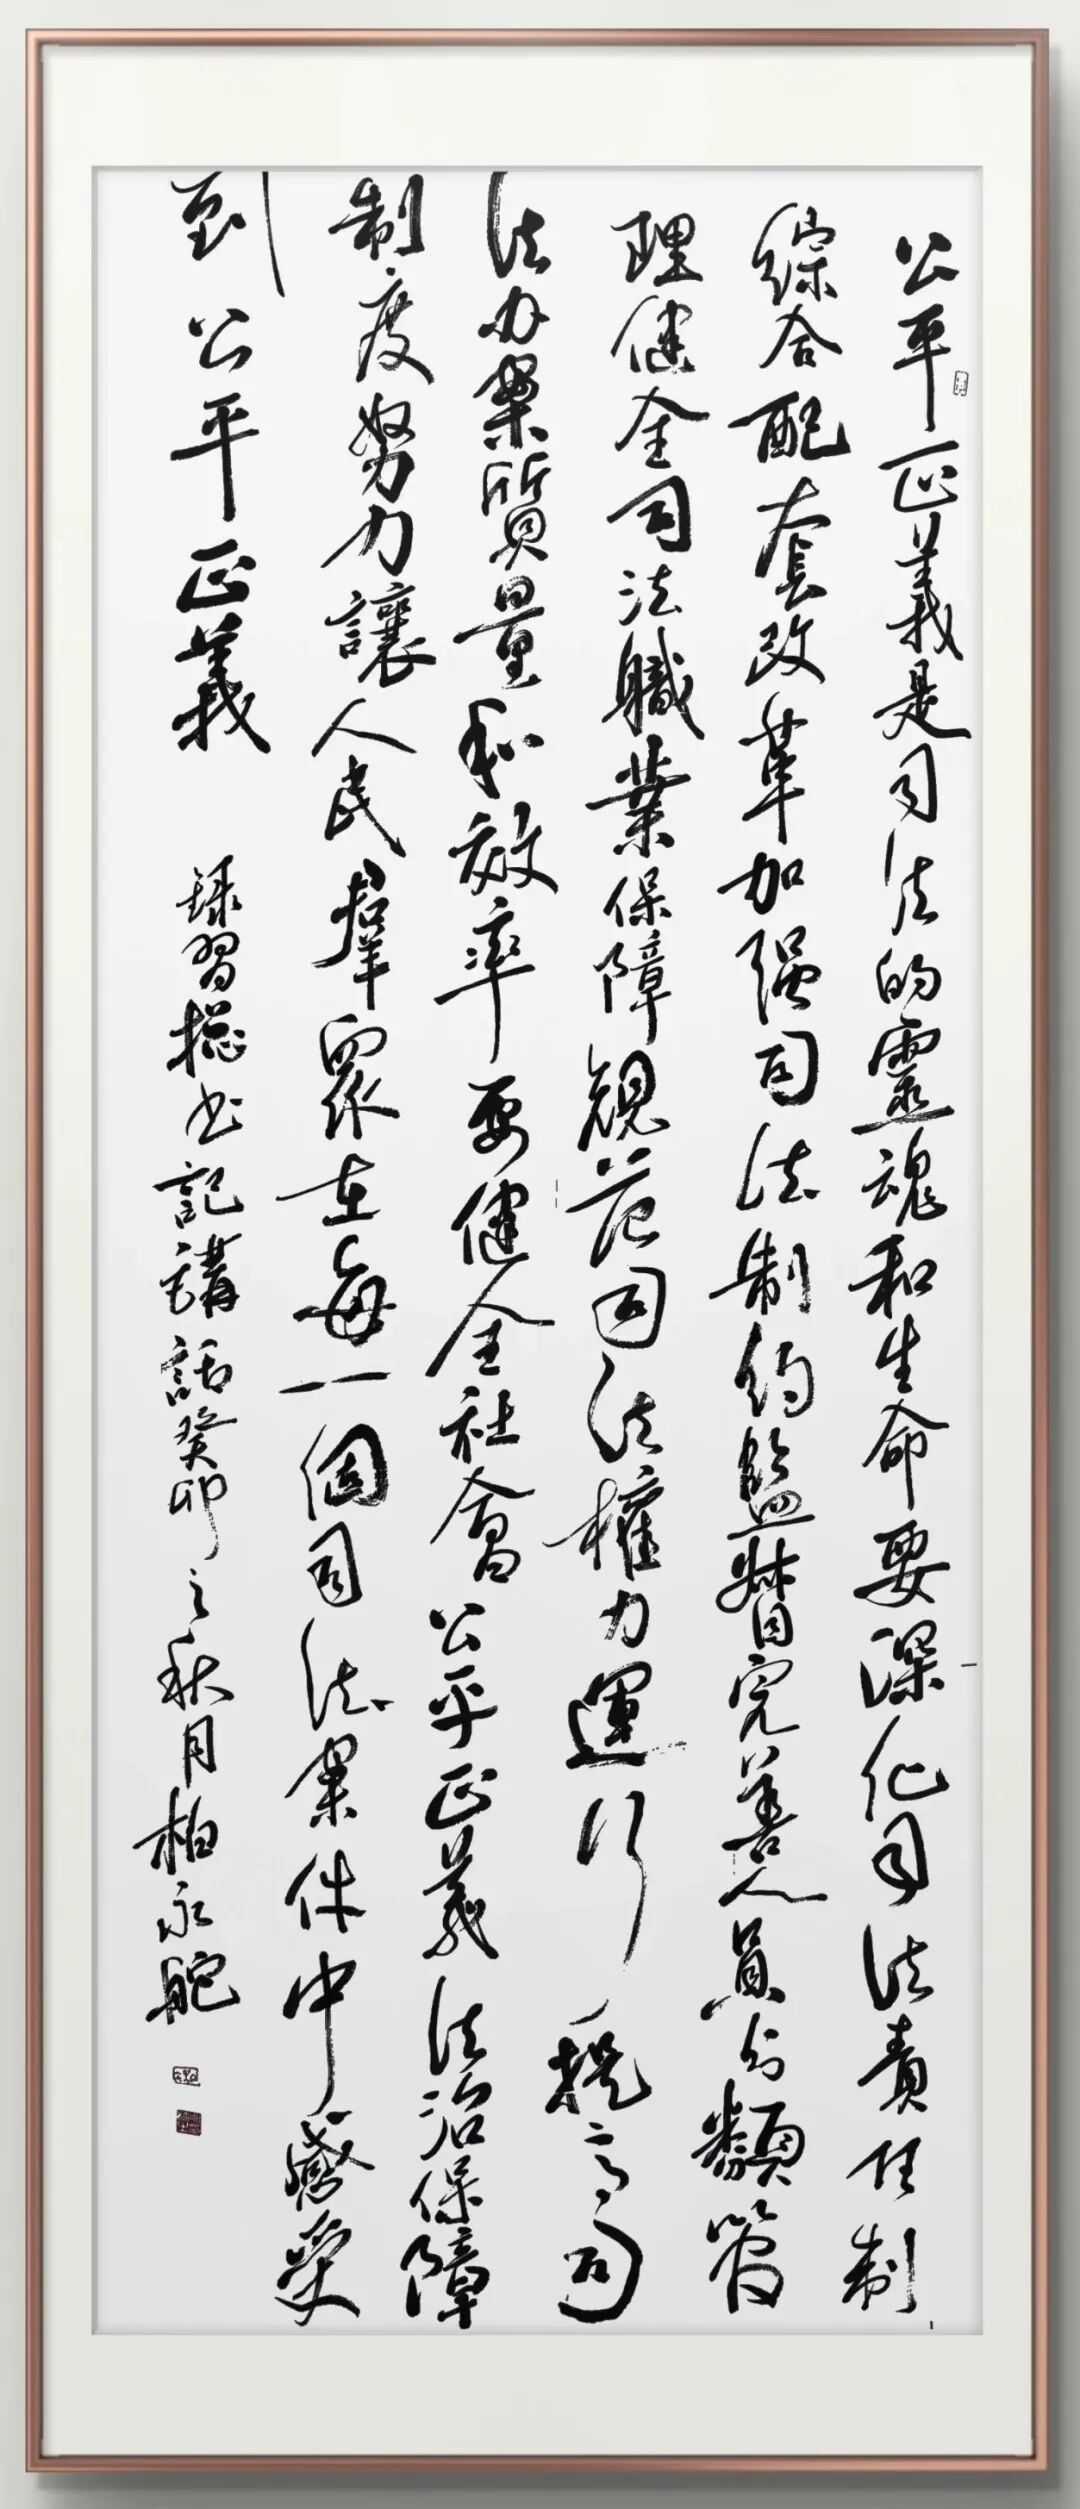 公平正義是司法的靈魂和生命要深化司法責任制
綜合配套改革加强司法制約監督完善人員分類管
理健全司法職業保障規范司法權力運行提高司
法办案質量和效率要健全社會公平正義法治保障
制度努力讓人民羣眾在每一個司法案件中感受
到公平正義
録習総书記講話癸卯之秋月柏永舵